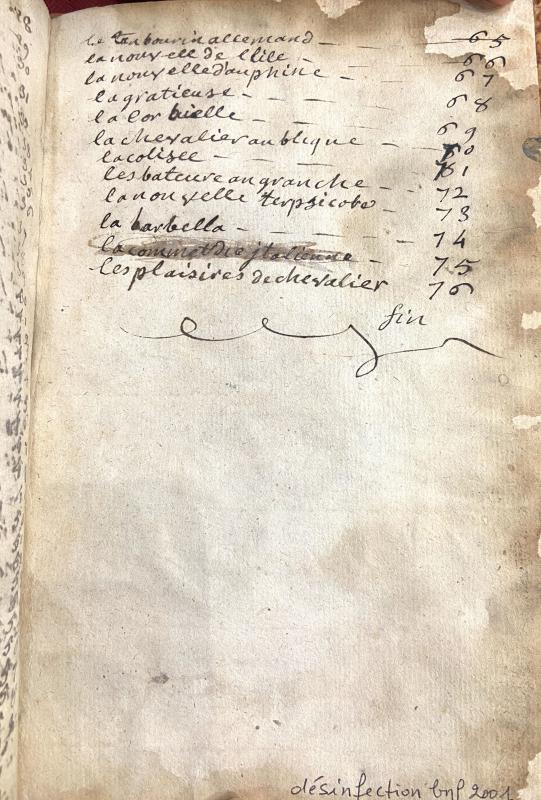 le tanbourin allemand — 65
la nouvell de l'lile — 66
la nouvelle dauphine — 67
la gratieuse — 68
la Corbielle — 69
la chevalier aublique — 70
la colisee — 61
les bateure an granche — 72
la nouvelle terpsicobe — 73
la barbella — 74
la commetdie jtalienne — 75
les plaisires de chevalier 76
fin
désinfection bnf 2001